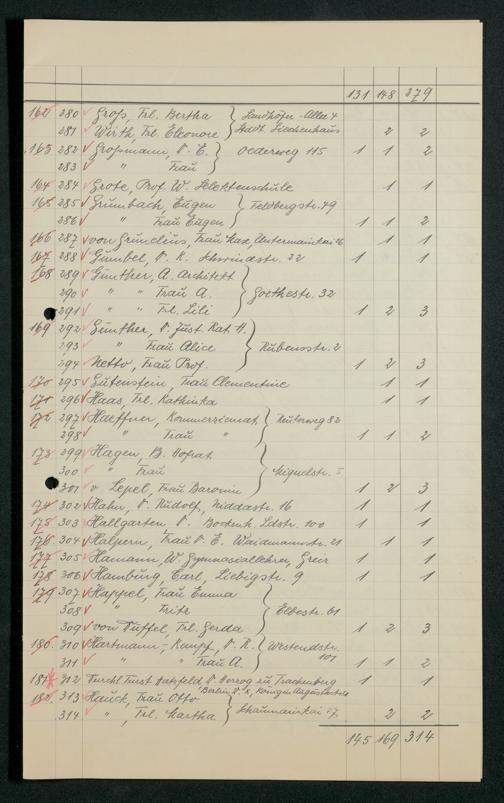 131 148 279
162 280 Groß, Frl. Bertha } Sandhöfer-Allee 4
281 Wirth, Frl. Eleonore } Stadt. Siechenhaus 2 2
163 282 Großmann, D. E. } Oederweg 115 1 1 2
283 " Frau }
164 284 Grote, Prof W. Selektenschule 1 1
165 285 Grumbach, Eugen } Feldbergstr. 49
286 " Frau Eugen } 1 1 2
166 287 von Grunelius, Frau Max, Untermainkai 26 1 1
167 288 Gumbel, D. K. Schwindstr. 22 1 1
168 289 Günther, A. Architekt
290 " " Frau A. } Goethestr. 32
291 " " Frl. Lili 1 2 3
169 292 Günther, D. Just. Rat. H.
293 " Frau Alice } Rubensstr. 2
294 Netto, Frau Prof. 1 2 3
170 295 Gutenstein, Frau Clementine 1 1
171 296 Haas, Frl. Kathinka 1 1
172 297 Haeffner, Kommerzienrat } Reuterweg 82
298 " Frau " 1 1 2
173 299 Hagen, B. Hofrat
300 " Frau } Miquelstr. 5
301 v Lepel, Frau Baronin 1 2 3
174 302 Hahn, D. Rudolf, Niddastr. 16 1 1
175 303 Hallgarten D. Bockenh. Ldstr. 100 1 1
176 304 Halpern, Frau D. E. Waidmannstr. 21 1 1
177 305 Hamann, W. Gymnasiallehrer, Greiz 1 1
178 306 Hamburg, Carl, Liebigstr. 9 1 1
179 307 Happel, Frau Emma
308 " Fritz } Elbestr. 61
309 von Duffel, Frl. Gerda 1 2 3
180. 310 Hartmann-Kempf, D. R. } Westendstr.
311 " " Frau A. } 107 1 1 2
181 312 Durchl Fürst Hatzfeld D Herzog zu Trachenberg 1 1
Berlin W. Königin Augustastr
182. 313 Hauck, Frau Otto
314 " , Frl. Martha } Schaumainkai 27. 2 2
145 169 314